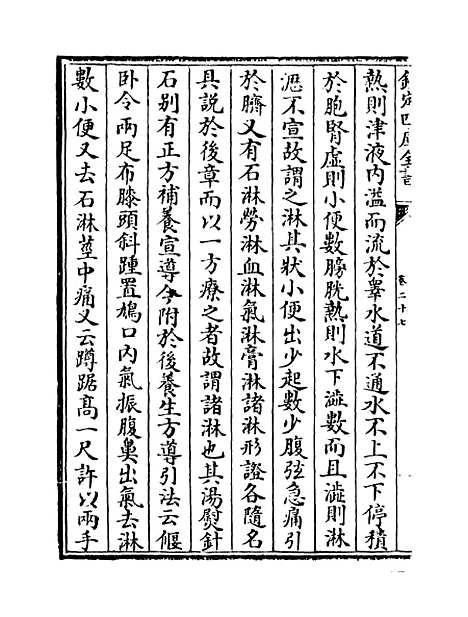 欽定四庫全書
卷二十七
熱則津液内溢而流於睾水道不通水不上不下停積
於胞腎虛則小便數膀胱熱則水下澁數而且澁則淋
瀝不宣故謂之淋其狀小便出少起數少腹弦急痛引
於臍又有石淋勞淋血淋氣淋膏淋諸淋形證各隨名
具說於後章而以一方療之者故謂諸淋也其湯熨針
石别有正方補養宣導今附於後養生方導引法云偃
卧令兩足布膝頭斜踵置鳩口内氣振腹鼻出氣去淋
數小便又去石淋莖中痛又云蹲踞高一尺許以兩手